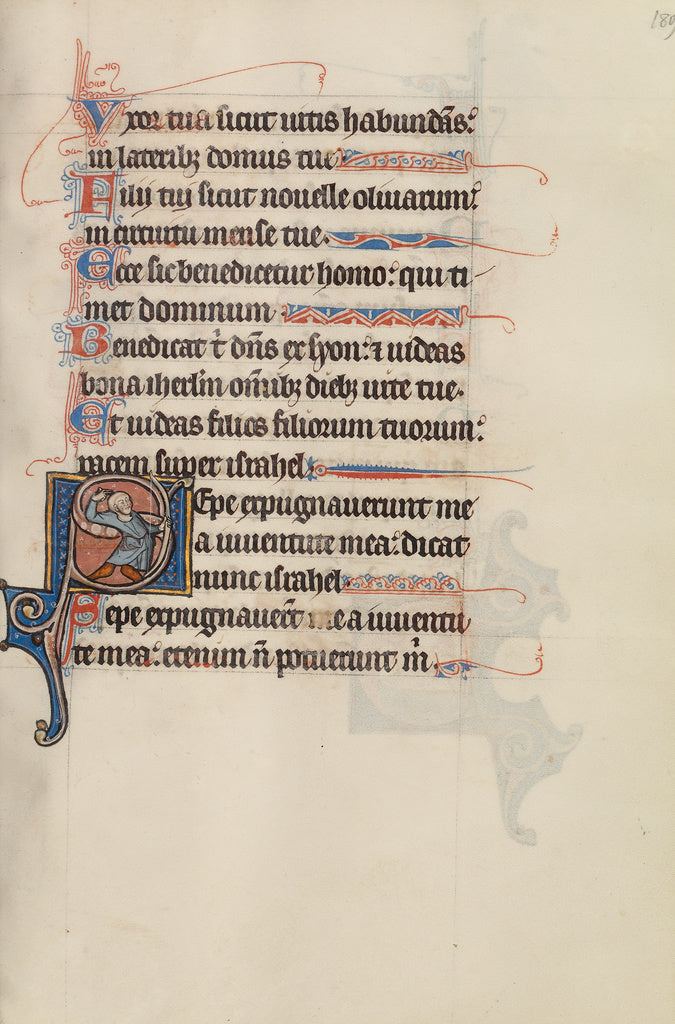 189
Vxor tua sicut uitis habundãs:
in laterib; domus tue
Filii tui sicut nouelle oliuarum:
in circuitu mense tue.
Ecce sic benedicetur homo: qui ti-
met dominum
Benedicat t̄ dñs ex syon: ⁊ uideas
bona iherlm̄ om̄ib; dieb; uite tue.
Et uideas filios filiorum tuorum:
pacem super israhel
Sepe expugnauerunt me
a iuuentute mea: dicat
nunc israhel
Sepe expugnauer̄t me a iuuentu
te mea: etenim n̄ potuerunt m̄.